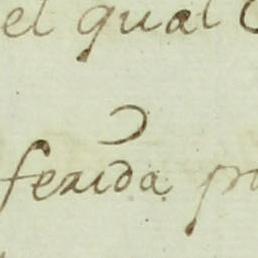 el qual
ferida